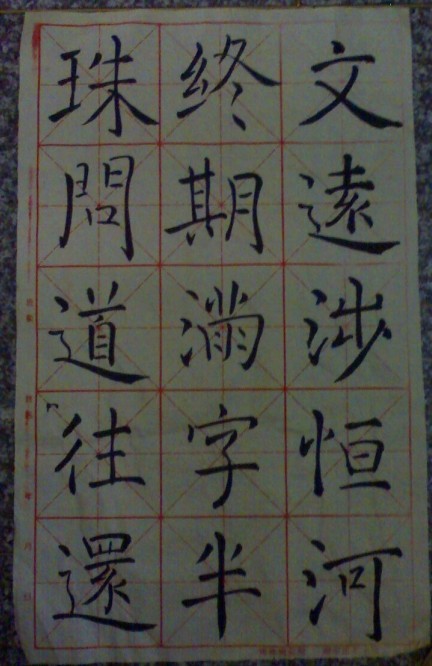 文遠涉恒河
終期滿字半
珠問道往還